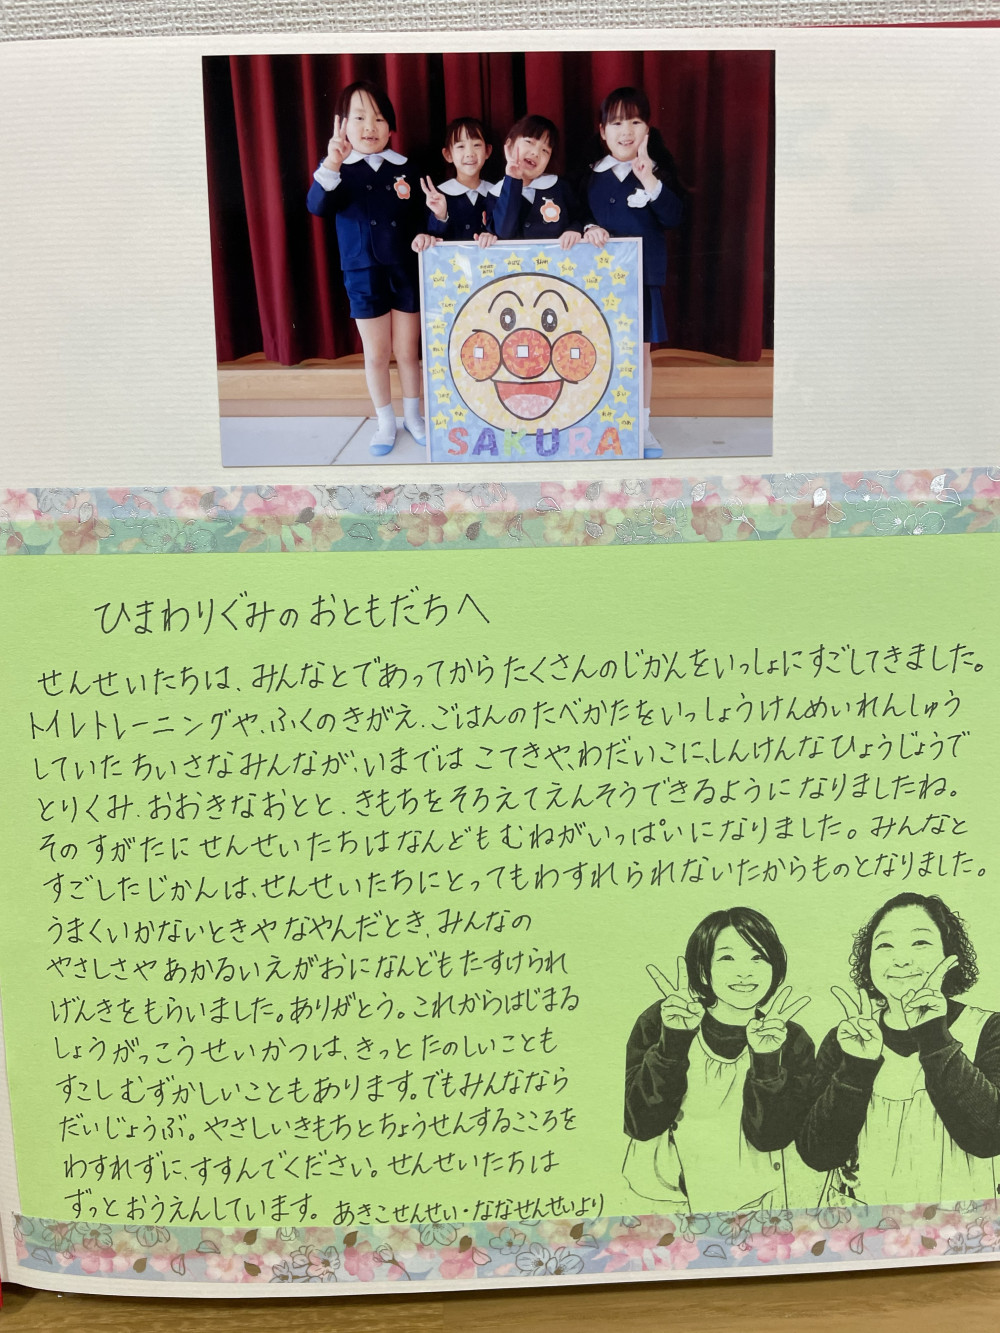 SAKURA
ひまわりぐみのおともだちへ
せんせいたちは、みんなとであってからたくさんのじかんをいっしょにすごしてきました。
トイレトレーニングや、ふくのきがえ、ごはんのたべかたをいっしょうけんめいれんしゅう
していたちいさなみんなが、いまではこてきや、わだいこに、しんけんなひょうじょうで
とりくみ、おおきなおとと、きもちをそろえてえんそうできるようになりましたね。
そのすがたにせんせいたちはなんどもむねがいっぱいになりました。みんなと
すごしたじかんは、せんせいたちにとってもわすれられないたからものとなりました。
うまくいかないときやなやんだとき、みんなの
やさしさやあかるいえがおになんどもたすけられ
げんきをもらいました。ありがとう。これからはじまる
しょうがっこうせいかつは、きっとたのしいことも
すこしむずかしいこともあります。でもみんななら
だいじょうぶ。やさしいきもちとちょうせんするこころを
わすれずに、すすんでください。せんせいたちは
ずっとおうえんしています。あきこせんせい・ななせんせいより